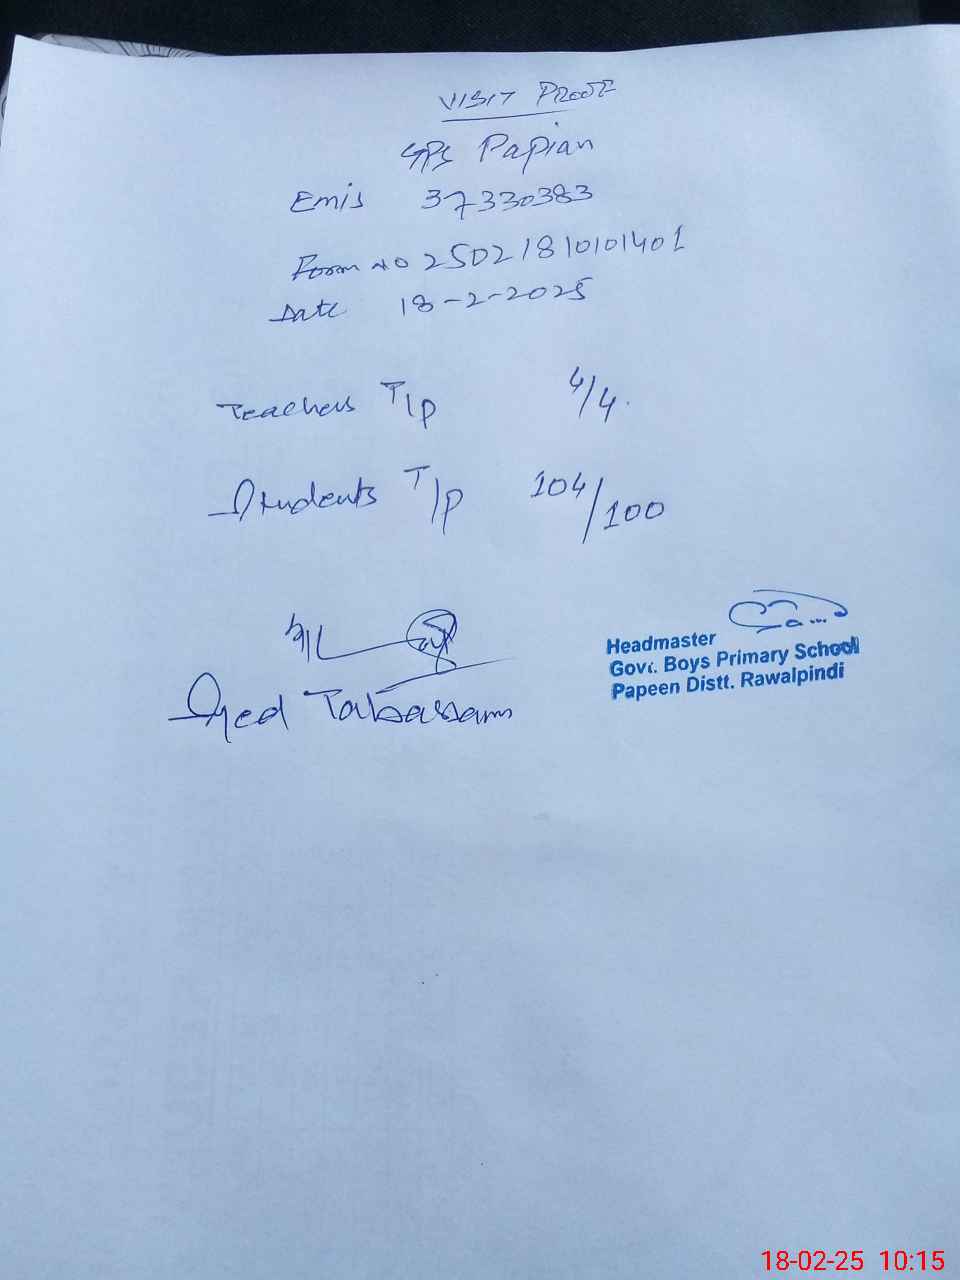 VISIT PROOF
GPS Papian
Emis 37330383
Form no 25021810101401
Date 18-2-2025
Teachers T/P 4/4.
Students T/P 104/100
Syed Tabassam
Headmaster
Govt. Boys Primary School
Papeen Distt. Rawalpindi
18-02-25 10:15